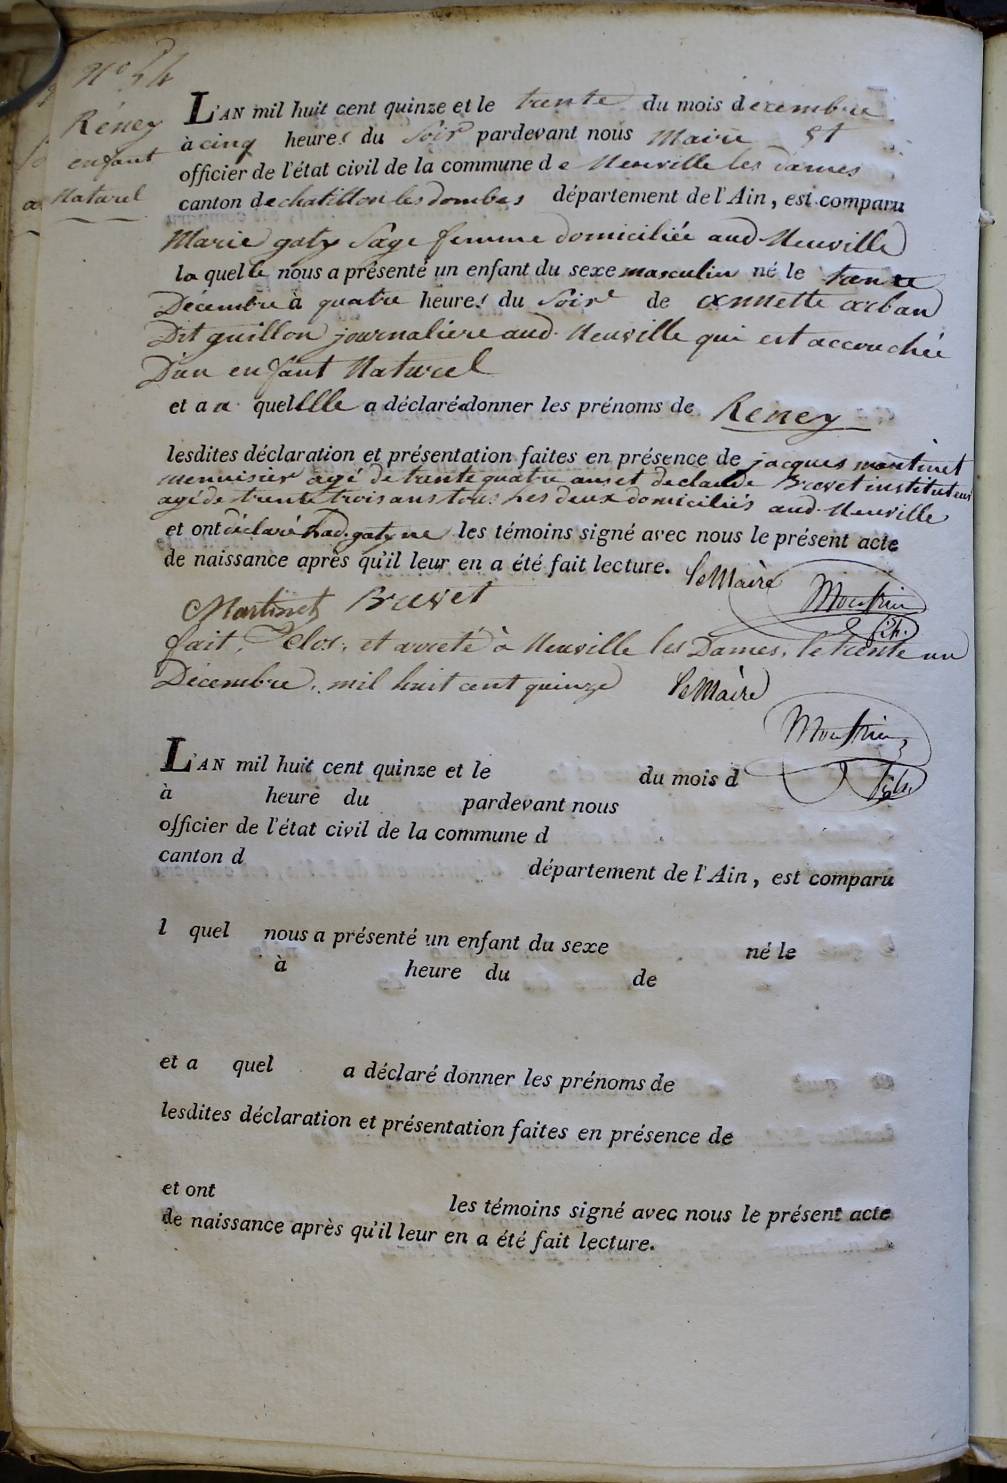 N° 54
Réney
enfant
Naturel
L'AN mil huit cent quinze et le trente du mois décembre
à cinq heures du soir pardevant nous Maire et
officier de l'état civil de la commune de Neuville les Dames
canton de chatillon les dombes département de l'Ain, est comparu
Marie gaty Sage femme domiciliée aud Neuville
la quelle nous a présenté un enfant du sexe masculin né le trente
Décembre à quatre heures du Soir de annette arban
Dit guillon journaliere aud. Neuville qui est accouchée
D'un enfant Naturel
et a a quellle a déclaré donner les prénoms de Reney
lesdites déclaration et présentation faites en présence de jacques martinet
mennisier agé de trente quatre ans et de claude Brevet instituteur
agé de trente trois ans tous Les deux domiciliés aud. Neuville
et ont déclaré lad. gaty ne les témoins signé avec nous le présent acte
de naissance après qu'il leur en a été fait lecture. le Maire
Martinet Brevet
fait, Clos, et arreté à Neuville les Dames, le trente un
Décembre, mil huit cent quinze le Maire
L'AN mil huit cent quinze et le du mois d
à heure du pardevant nous
officier de l'état civil de la commune d
canton d département de l'Ain, est comparu
l quel nous a présenté un enfant du sexe né le
à heure du de
et a quel a déclaré donner les prénoms de
lesdites déclaration et présentation faites en présence de
et ont les témoins signé avec nous le présent acte
de naissance après qu'il leur en a été fait lecture.